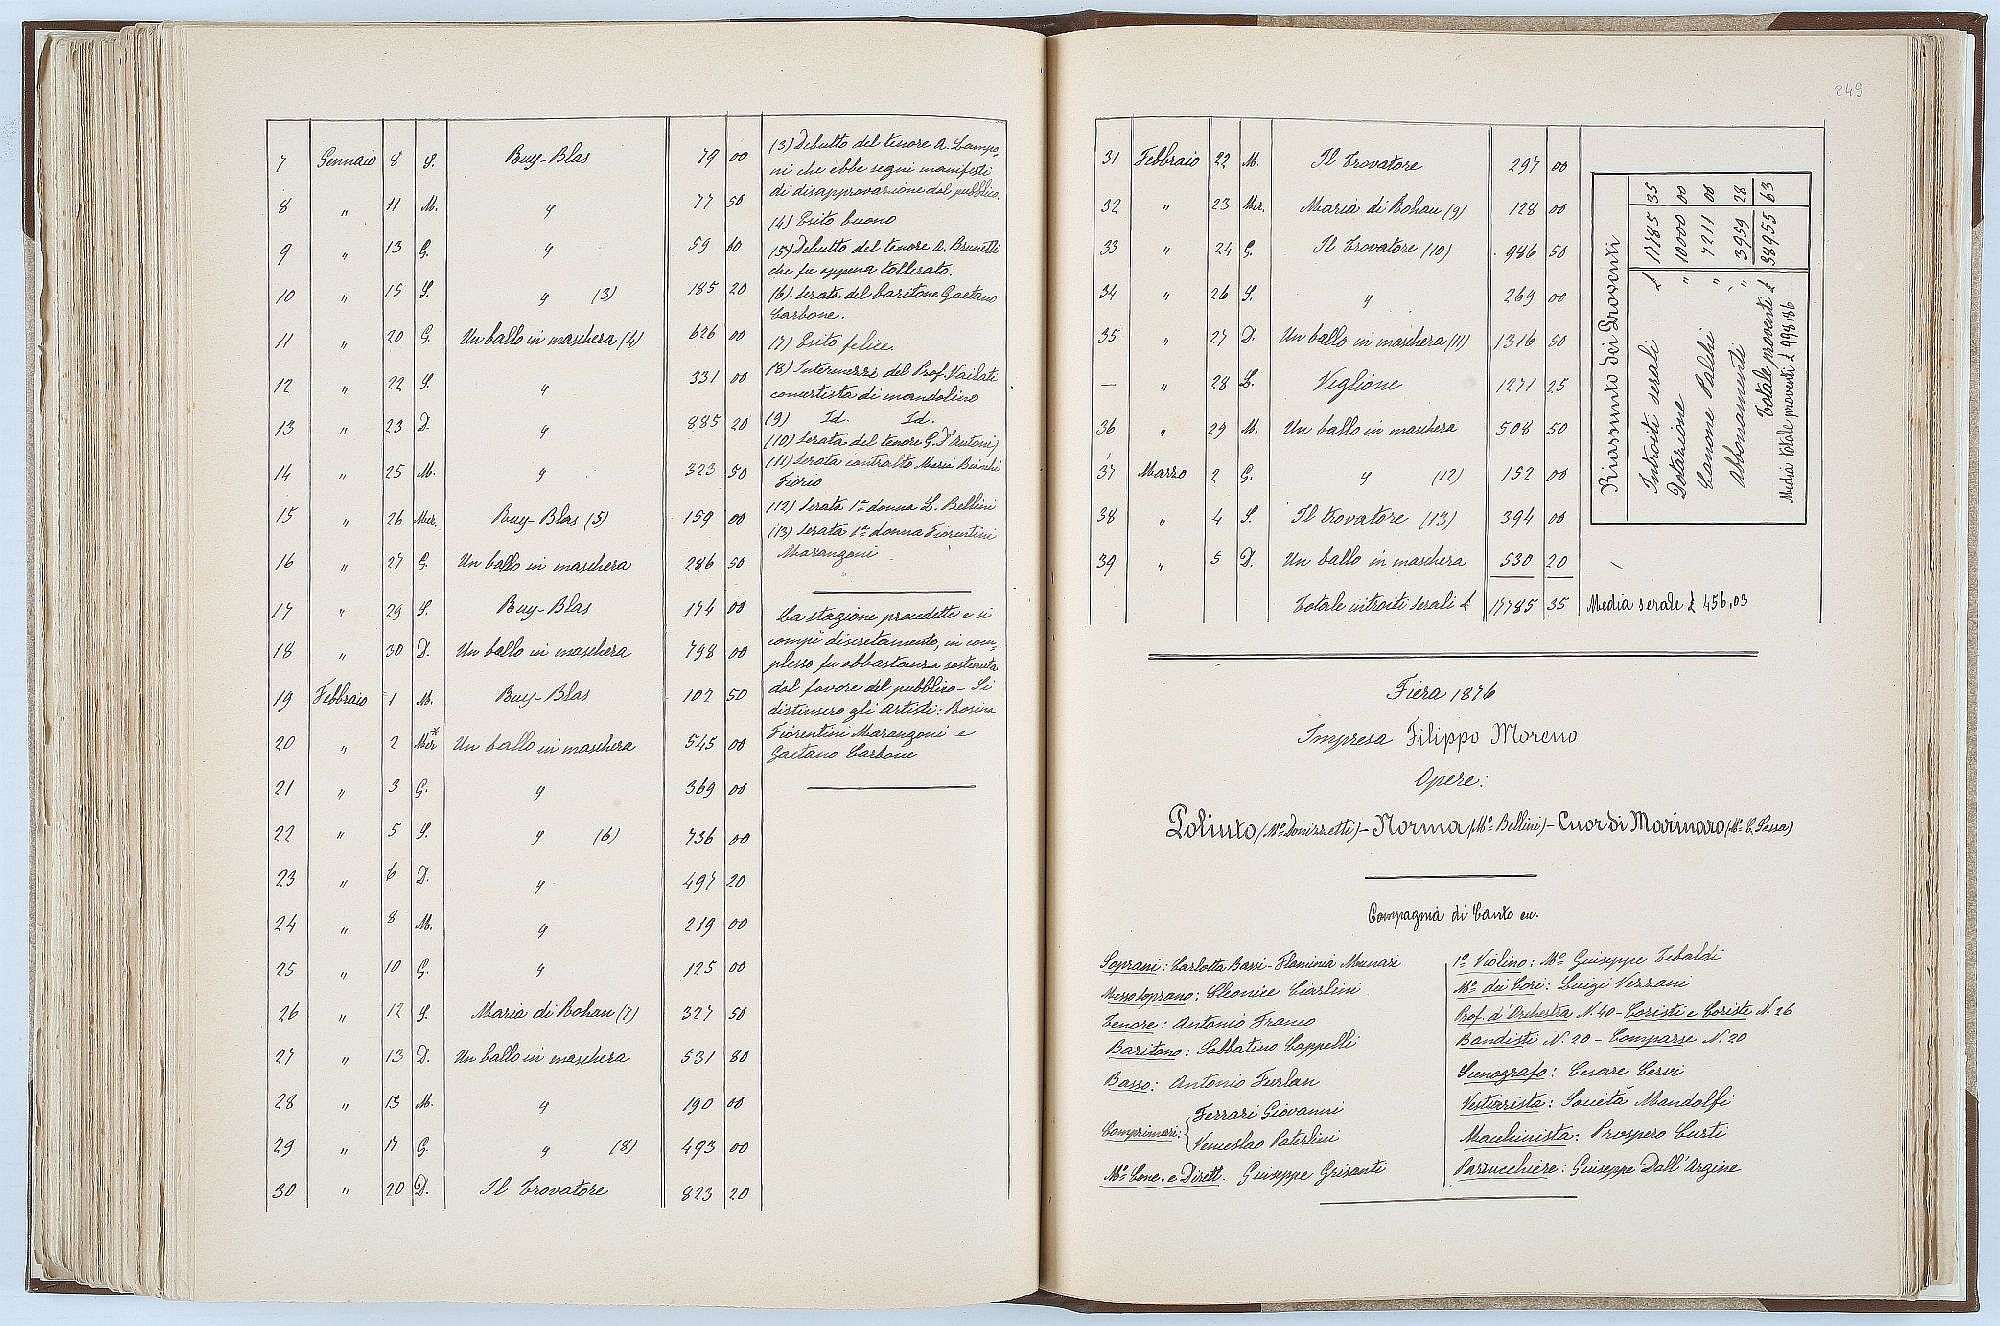 7 Gennaio 8 S. Ruy-Blas 79 00
8 " 11 M. " 77 50
9 " 13 G. " 59 60
10 " 15 S. " (3) 185 20
11 " 20 G. Un ballo in maschera (4) 626 00
12 " 22 S. " 331 00
13 " 23 D. " 885 20
14 " 25 M. " 323 50
15 " 26 Mer. Ruy-Blas (5) 159 00
16 " 27 G. Un ballo in maschera 286 50
17 " 29 S. Ruy-Blas 174 00
18 " 30 D. Un ballo in maschera 798 00
19 Febbraio 1 M. Ruy-Blas 107 50
20 " 2 Mer Un ballo in maschera 545 00
21 " 3 G. " 369 00
22 " 5 S. " (6) 736 00
23 " 6 D. " 497 20
24 " 8 M. " 219 00
25 " 10 G. " 125 00
26 " 12 S. Maria di Rohan (7) 327 50
27 " 13 D. Un ballo in maschera 531 80
28 " 15 M. " 190 00
29 " 17 G. " (8) 493 00
30 " 20 D. Il Trovatore 823 20
(3) Debutto del tenore A. Lampo-
ni che ebbe segni manifesti
di disapprovazione dal pubblico.
(4) Esito buono
(5) Debutto del tenore A. Brunetti
che fu appena tollerato.
(6) Serata del baritono Gaetano
Carbone.
(7) Esito felice.
(8) Intermezzi del Prof. Vailati
concertista di mandolino
(9) Id. Id.
(10) Serata del tenore G. D'Antoni
(11) Serata contralto Maria Bianchi
Fiorio
(12) Serata 1ª donna L. Bellini
(13) Serata 1ª donna Fiorentini
Marangoni
La stagione procedette e si
compì discretamente, in com-
plesso fu abbastanza sostenuta
dal favore del pubblico - Si
distinsero gli Artisti: Rosina
Fiorentini Marangoni e
Gaetano Carbone
249
31 Febbraio 22 M. Il Trovatore 297 00
32 " 23 Mer. Maria di Rohan (9) 128 00
33 " 24 G. Il Trovatore (10) 986 50
34 " 26 S. " 269 00
35 " 27 D. Un ballo in maschera (11) 1316 50
— " 28 L. Veglione 1271 25
36 " 29 M. Un ballo in maschera 508 50
37 Marzo 2 G. " (12) 152 00
38 " 4 S. Il Trovatore (13) 394 00
39 " 5 D. Un ballo in maschera 530 20
Totale introiti serali £ 17785 35 Media serale £ 456,03
Riassunto dei Proventi
Introiti serali £ 17785 35
Dotazione " 10000 00
Canone Palchi " 7211 00
Abbonamenti " 3959 28
Totale proventi £ 38955 63
Media totale proventi £ 998.86
Fiera 1876
Impresa Filippo Moreno
Opere:
Poliuto (Mº Donizzetti) - Norma (Mº Bellini) - Cuor di Marinaro (Mº C. Sessa)
Compagnia di Canto ecc.
Soprani: Carlotta Bossi - Flaminia Munari
Mezzosoprano: Cleonice Ciarlini
Tenore: Antonio Franco
Baritono: Sabbatino Cappelli
Basso: Antonio Furlan
Comprimari: Ferrari Giovanni
Venceslao Paterlini
Mº Conc. e Dirett. Giuseppe Grisanti
1º Violino: Mº Giuseppe Tebaldi
Mº dei Cori: Luigi Vezzani
Prof. d'Orchestra N. 40 - Coristi e Coriste N. 26
Bandisti N. 20 - Comparse N. 20
Scenografo: Cesare Cervi
Vestiarista: Società Mandolfi
Macchinista: Prospero Curti
Parrucchiere: Giuseppe Dall'Argine